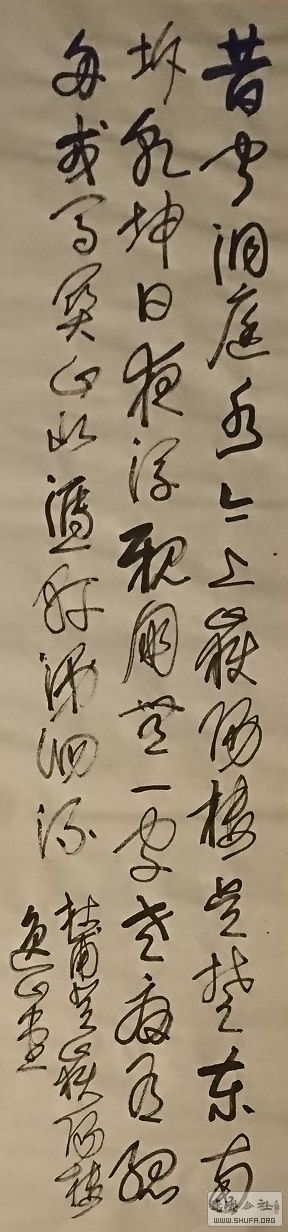 昔聞洞庭水今上嶽陽樓吳楚東南
坼乾坤日夜浮親朋無一字老病有孤
舟戎馬關山北憑軒涕泗流
杜甫登嶽陽樓
山書
WWW.SHUFA.ORG